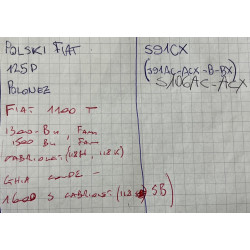 POLSKI FIAT
125P
POLONEZ
FIAT 1100 T
1300-BN, FAM
1500 BN, FAM
CABRIOLET (118H, 118K)
GHIA COUPE -
1600 S CABRIOLET (118 SB)
S91CX
(S91AC-ACX-B-BX)
S10GAC-ACX